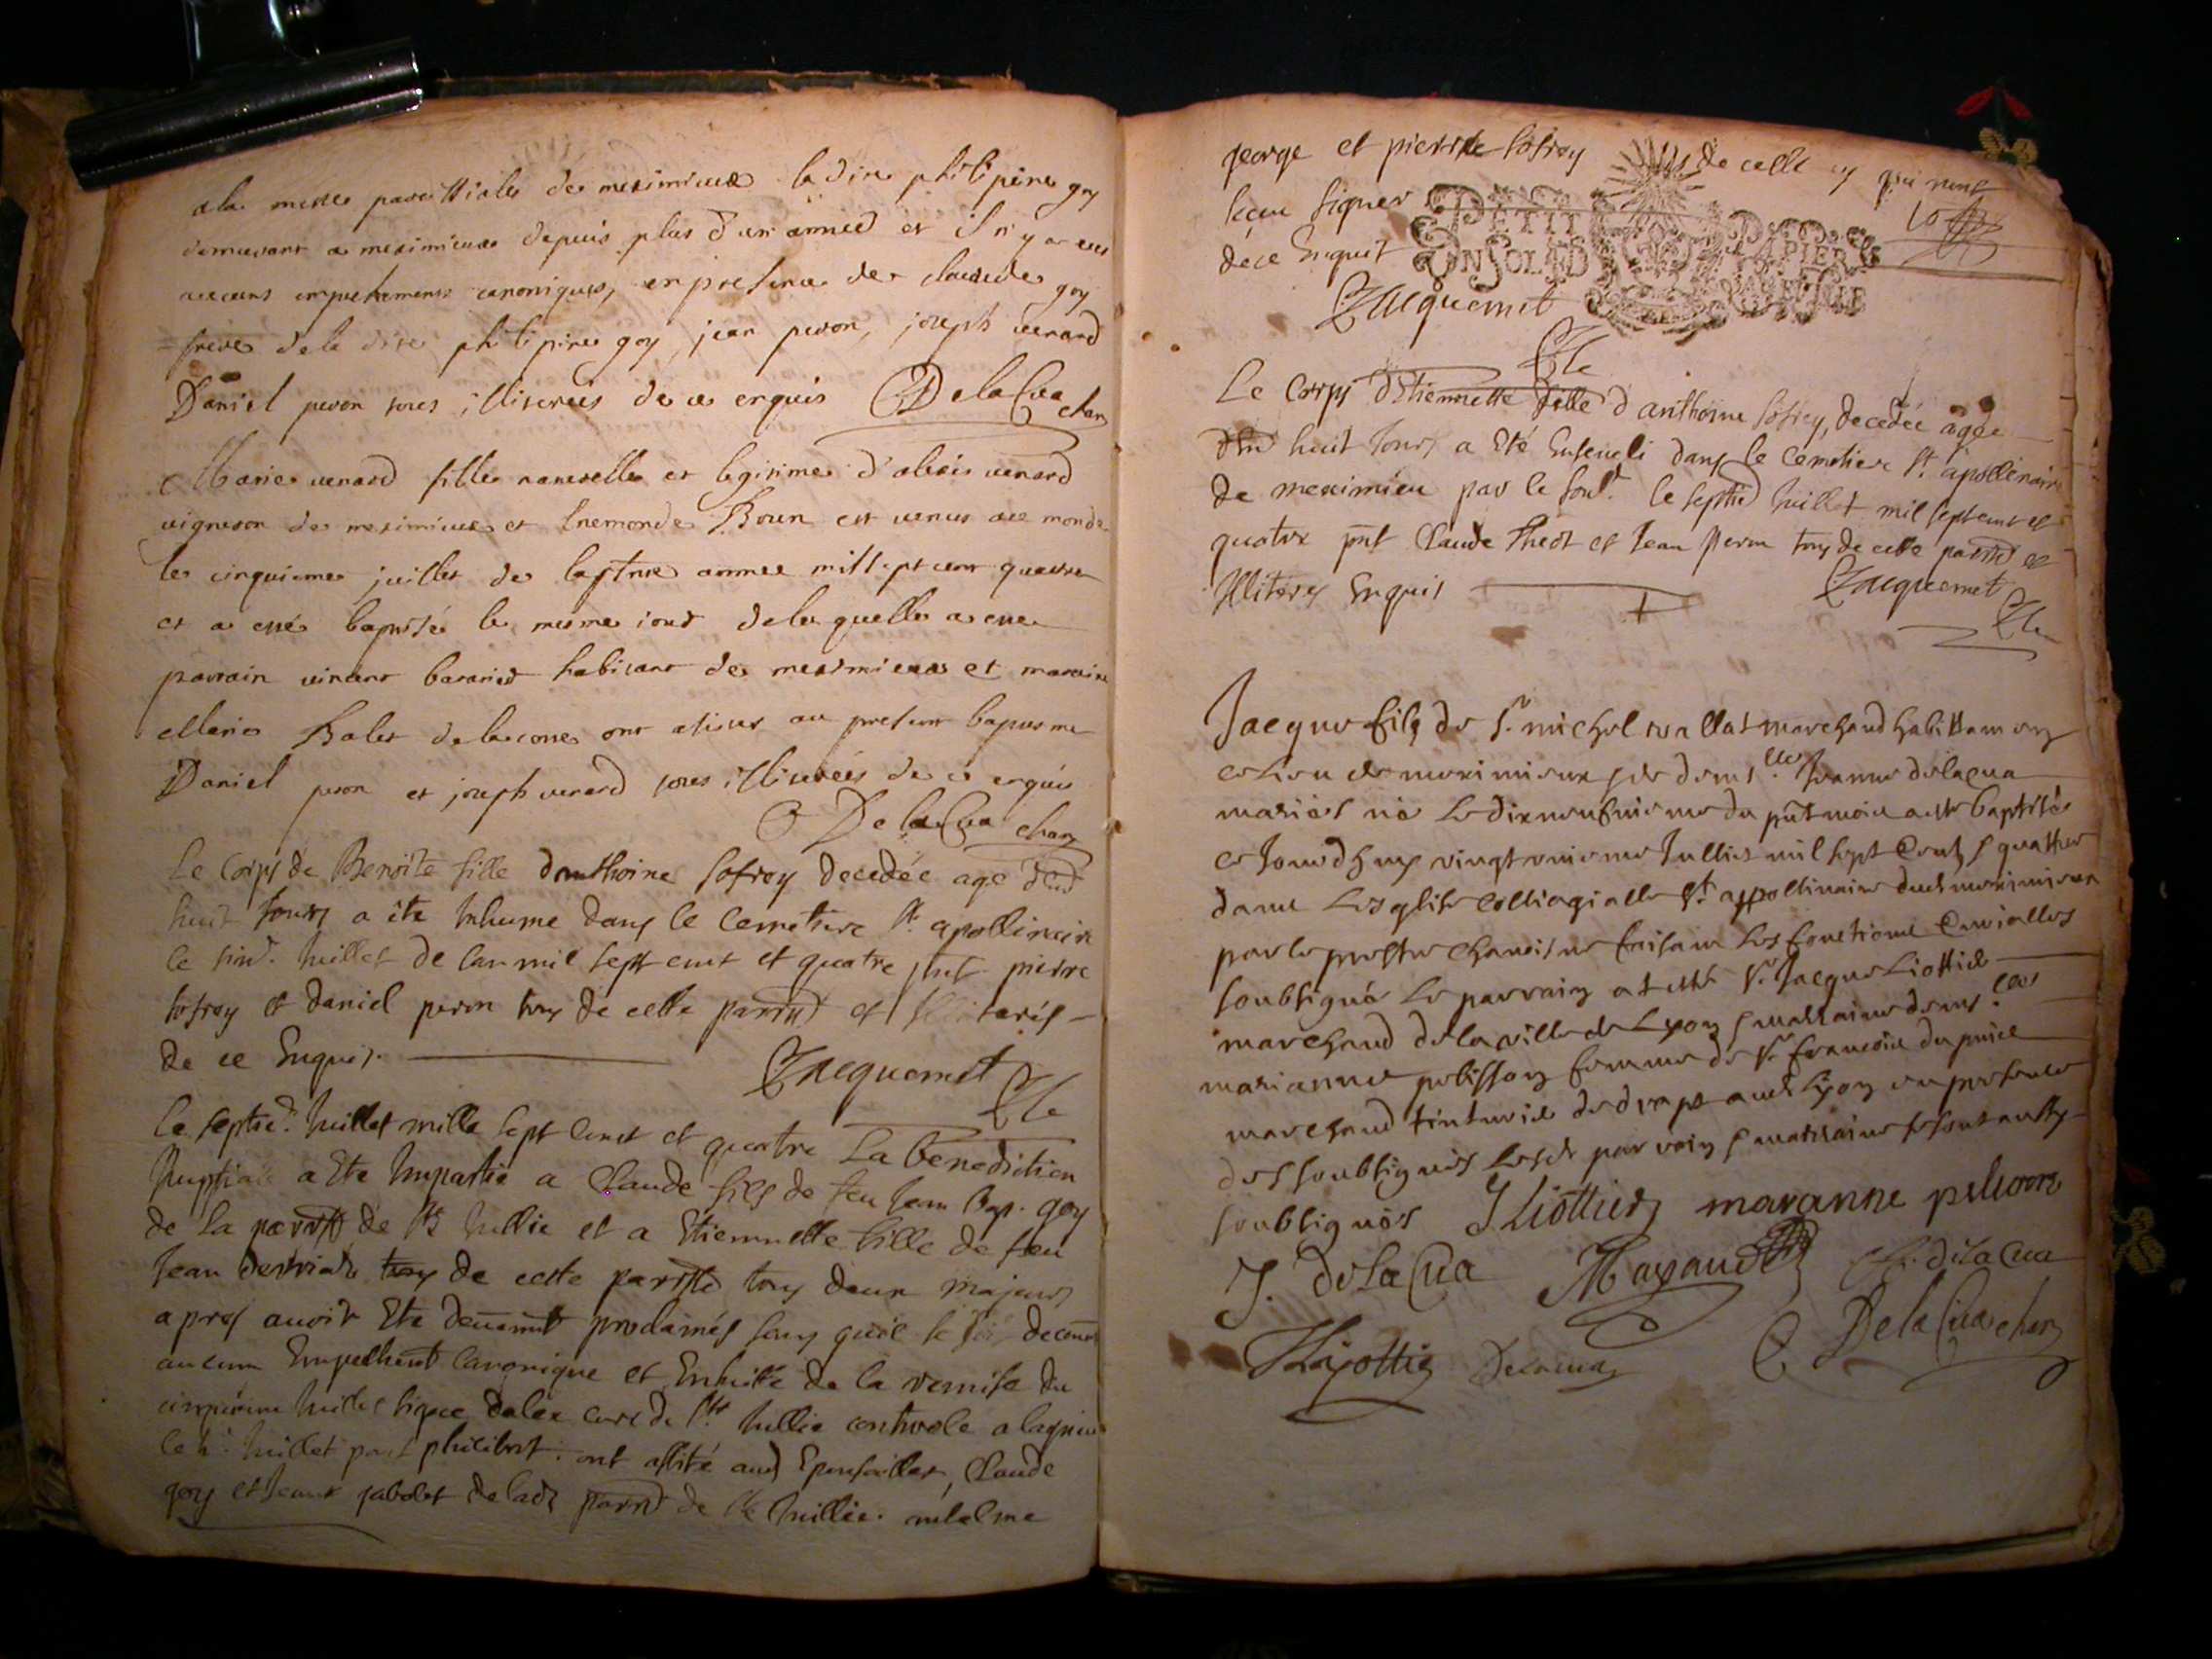 a la messe paroissiale de meximieux la dite philipine goy
demeurant a meximieux depuis plus d'un année et il n'y a eus
aucuns empechemens canoniques, en presence de claude goy
frere de la dite philipine goy, jean peron, joseph venard
Daniel peron tous illiterées de ce enquis DelaCua chan
Marie venard fille naturelle et legitime d'alexis venard
vigneron de meximieux et Enemonde Boun est venue au monde
le cinquieme juillet de l'année mill sept cent quatre
et a esté baptisée le meme jour de la quelle a esté
parrain vincent habitant de meximieux et maraine
Marie Balet de la cone ont assisté au present baptesme
Daniel peron et joseph venard tous illiterées de ce enquis
DelaCua chan
Le Corps de Benoite fille d'anthoine sofroy decedée age d'en
huit jours a été inhume dans le cemetiere St. apollinaire
le sixe. Juillet de l'an mil sept cent et quatre pnt pierre
sofroy et daniel peron tous de cette parroisse et illiterés
de ce Enquis. Jacquemet
Le septie. Juillet mille sept cent et quatre La benediction
Nuptiale a Ete Impartie a Claude fils de feu Jean Bap. goy
de la parroisse de Ste Jullie et a Etiennette fille de feu
Jean de cette parroisse tous deux majeurs
apres auoir Ete deuement proclamés sans qu'il se soit decouvert
aucun Empechent canonique et Ensuitte de la remise du
cinquieme Juillet signee cure de Ste Jullie controle a lagnieu
le Juillet philibert. ont assité aud Epousailles, Claude
goy et Jean gabolet de lad parroisse de Ste Jullie.
george et pierre sofroy de celle cy qui n'ont
sceu signer
de ce Enquit
PETIT PAPIER
UN SOL
Jacquemet
Le Corps d'Etiennette fille d'anthoine sofroy, decedée agée
d'en huit Jours a Eté Enseueli dans le Cemetiere St. apollinaire
de meximieu par le sous. le septie Juillet mil sept cent et
quatre pnt Claude Theot et Jean Peron tous de cette parroisse et
Illiterés Enquis Jacquemet
Jacque fils de Sr. michel vallat marchand habittam en
ce lieu de meximieux & de dems.lle Jeanne delacua
mariés né le dixneufviesme du pnt mois a este baptisé
ce Jourd'huy vingt uniesme Jullies mil sept Cents & quattre
dans Lesglise colliagialle St appollinaire dud meximieux
par le prestre chanoisne faisant les fonctions Curialles
soubsigné Le parrain a este Sr. Jacque Liottie
marchand de la ville de Lyon & marraine dems.lle
marianne pelisson femme de Sr françois dupuice
marchand tinturie de draps aud Lyon en presence
des soubsignés Lesd parrain & marraine se sont aussy
soubsignés J Liottier maranne pelisson
J. DelaCua Mayaud delaCua
JLiottie Delacua DelaCua chan